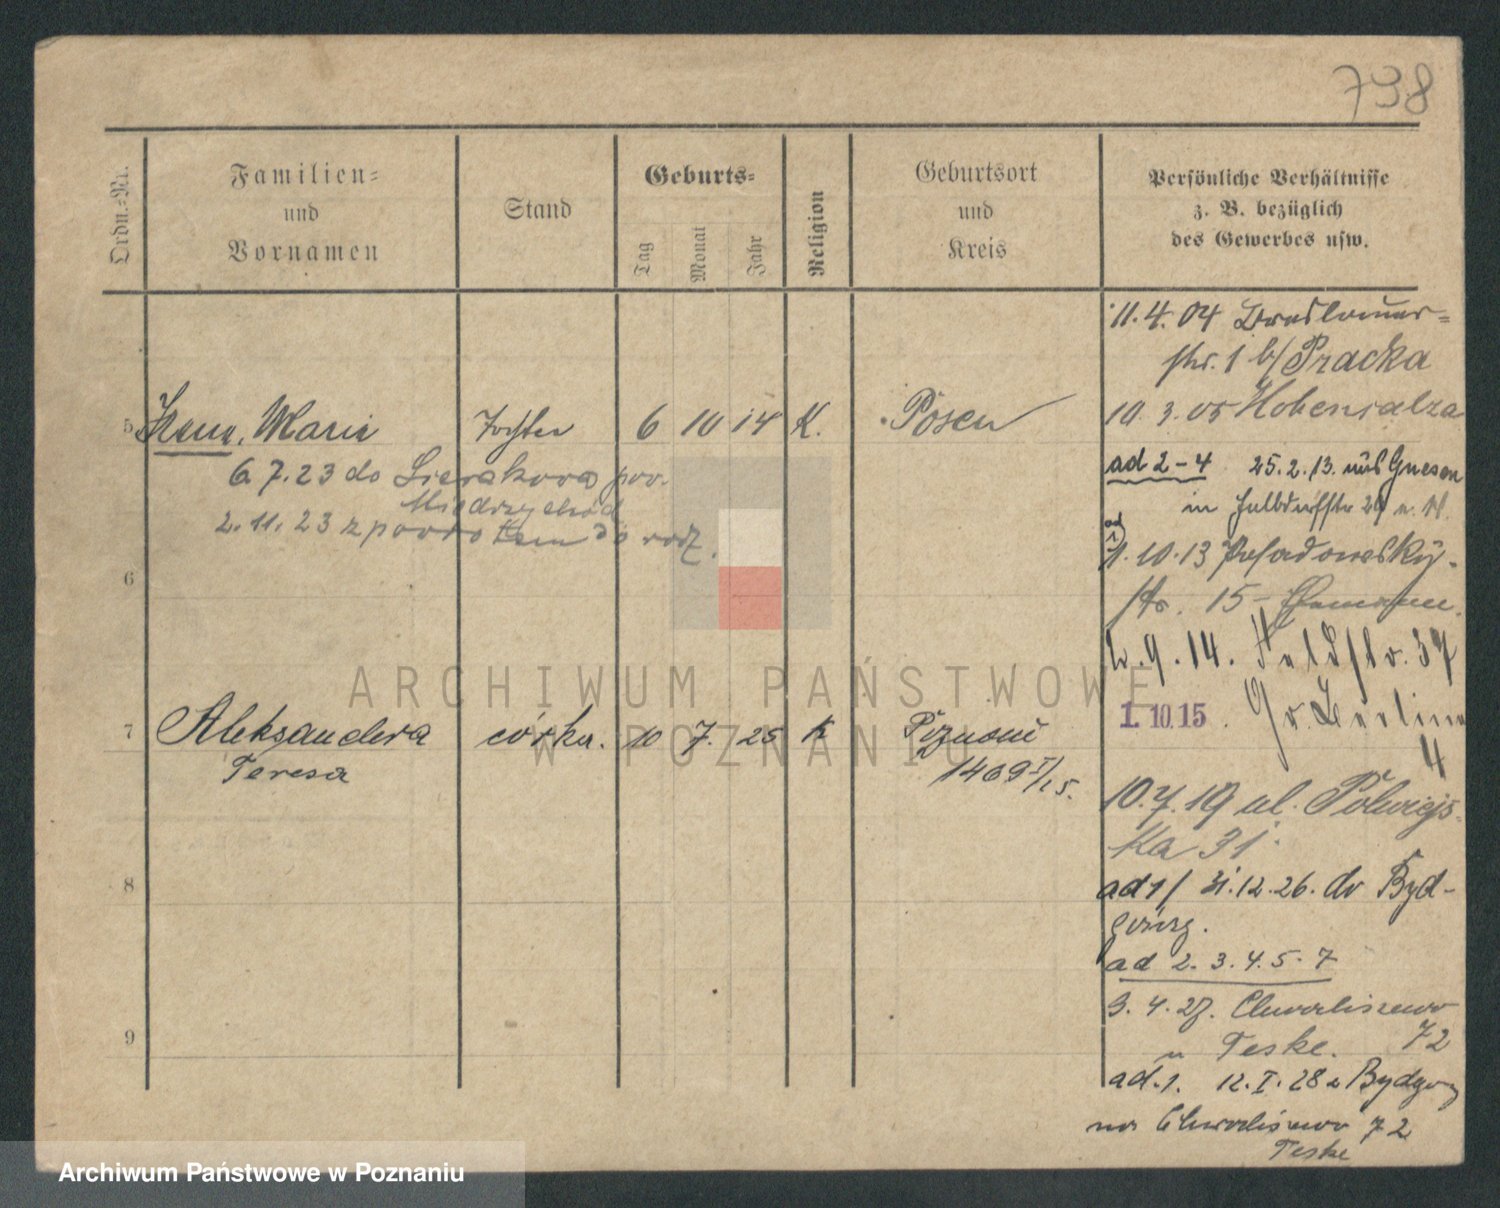 798
Ordn.-Nr.
Familien-
und
Vornamen
Stand
Geburts-
Tag
Monat
Jahr
Religion
Geburtsort
und
Kreis
Persönliche Verhältnisse
z. B. bezüglich
des Gewerbes usw.
5 Marie Tochter 6 10 14 K. Posen
6. 7. 23 do Sierakowa pow.
Międzychód
2. 11. 23 z powrotem do rodz.
6
7 Aleksandera córka. 10 7. 25 K Poznań
Teresa
1469 I/25.
8
9
11. 4. 04 Breslauer-
str. 1 b/ Pracka
10. 3. 05 Hohensalza
ad 2-4 25. 2. 13. aus Gnesen
in
1. 10. 13 Posadowsky-
str. 15
9. 14. Feldstr. 37
1. 10. 15. Gr. Berliner
4
10. 7. 19 ul. Półwiejs-
ka 31
ad 1/ 31. 12. 26. do Byd-
goszcz.
ad 2. 3. 4. 5. 7
9. 4. 27. Chwaliszewo
72
u Teske.
ad. 1. 12. I. 28 z Bydgoszcz
na Chwaliszewo 72
Teske
ARCHIWUM PAŃSTWOWE
W POZNANIU
Archiwum Państwowe w Poznaniu